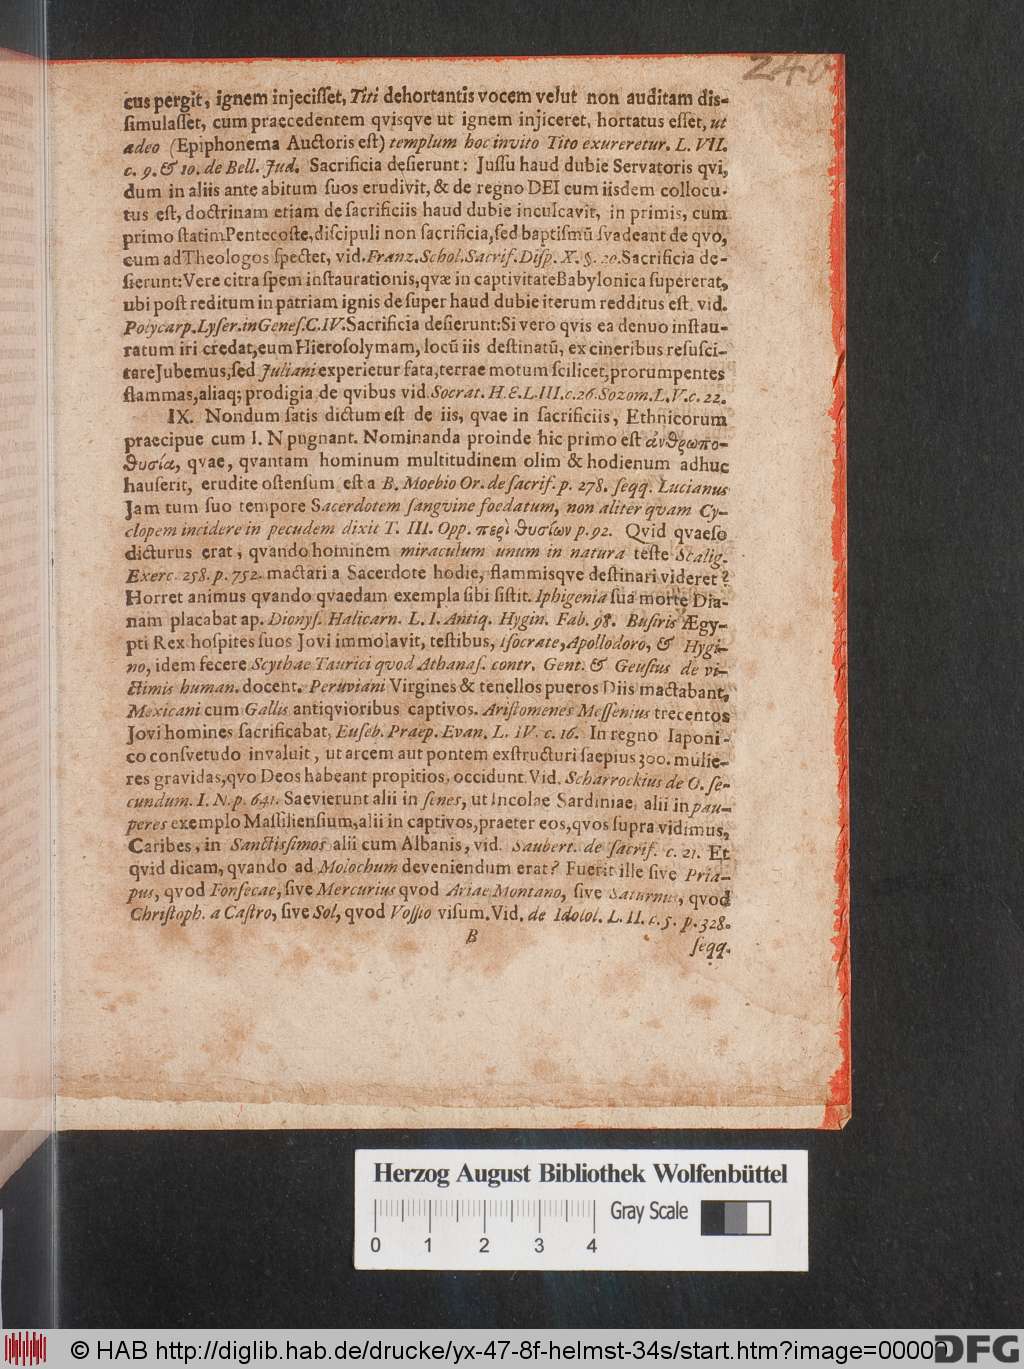 246
cus pergit, ignem injeciſſet, Titi dehortantis vocem velut non auditam diſ-
ſimulaſſet, cum praecedentem qvisqve ut ignem injiceret, hortatus eſſet, ut
adeo (Epiphonema Auctoris eſt) templum hoc invito Tito exureretur. L. VII.
c. 9. & 10. de Bell. Jud. Sacrificia deſierunt: Juſſu haud dubie Servatoris qvi,
dum in aliis ante abitum ſuos erudivit, & de regno DEI cum iisdem collocu-
tus eſt, doctrinam etiam de ſacrificiis haud dubie inculcavit, in primis, cum
primo ſtatim Pentecoſte, diſcipuli non ſacrificia, ſed baptiſmũ ſvadeant de qvo,
cum ad Theologos ſpectet, vid. Franz. Schol. Sacrif. Diſp. X. §. 20. Sacrificia de-
ſierunt: Vere citra ſpem inſtaurationis, qvæ in captivitate Babylonica ſupererat,
ubi poſt reditum in patriam ignis deſuper haud dubie iterum redditus eſt. vid.
Polycarp. Lyſer. in Geneſ. C. IV. Sacrificia deſierunt: Si vero qvis ea denuo inſtau-
ratum iri credat, eum Hieroſolymam, locũ iis deſtinatũ, ex cineribus reſuſci-
tare Jubemus, ſed Juliani experietur fata, terrae motum ſcilicet, prorumpentes
flammas, aliaq; prodigia de qvibus vid. Socrat. H. E. L. III. c. 26. Sozom. L. V. c. 22.
IX. Nondum ſatis dictum eſt de iis, qvae in ſacrificiis, Ethnicorum
praecipue cum I. N pugnant. Nominanda proinde hic primo eſt ἀνθρωπο-
θυσία, qvae, qvantam hominum multitudinem olim & hodienum adhuc
hauſerit, erudite oſtenſum eſt a B. Moebio Or. de ſacrif. p. 278. ſeqq. Lucianus
Jam tum ſuo tempore Sacerdotem ſangvine foedatum, non aliter qvam Cy-
clopem incidere in pecudem dixit T. III. Opp. περὶ θυσίων p. 92. Qvid qvaeſo
dicturus erat, qvando hominem miraculum unum in natura teſte Scalig.
Exerc. 258. p. 752. mactari a Sacerdote hodie, flammisqve deſtinari videret?
Horret animus qvando qvaedam exempla ſibi ſiſtit. Iphigenia ſua morte Dia-
nam placabat ap. Dionyſ. Halicarn. L. I. Antiq. Hygin. Fab. 98. Buſiris Ægy-
pti Rex hoſpites ſuos Jovi immolavit, teſtibus, Iſocrate, Apollodoro, & Hygi-
no, idem fecere Scythae Taurici qvod Athanaſ. contr. Gent. & Geuſius de vi-
ctimis human. docent. Peruviani Virgines & tenellos pueros Diis mactabant,
Mexicani cum Gallis antiqvioribus captivos. Ariſtomenes Meſſenius trecentos
Jovi homines ſacrificabat, Euſeb. Praep. Evan. L. IV. c. 16. In regno Iaponi-
co conſvetudo invaluit, ut arcem aut pontem exſtructuri ſaepius 300. mulie-
res gravidas, qvo Deos habeant propitios, occidunt. Vid. Scharrockius de O. ſe-
cundum. I. N. p. 641. Saevierunt alii in ſenes, ut Incolae Sardiniae, alii in pau-
peres exemplo Maſſilienſium, alii in captivos, praeter eos, qvos ſupra vidimus,
Caribes, in Sanctiſſimos alii cum Albanis, vid. Saubert. de ſacrif. c. 21. Et
qvid dicam, qvando ad Molochum deveniendum erat? Fuerit ille ſive Pria-
pus, qvod Fonſecae, ſive Mercurius qvod Ariae Montano, ſive Saturnus, qvod
Chriſtoph. a Caſtro, ſive Sol, qvod Voſſio viſum. Vid. de Idolol. L. II. c. 5. p. 328.
B
ſeqq.
Herzog August Bibliothek Wolfenbüttel
Gray Scale
0 1 2 3 4
© HAB http://diglib.hab.de/drucke/yx-47-8f-helmst-34s/start.htm?image=00009
DFG